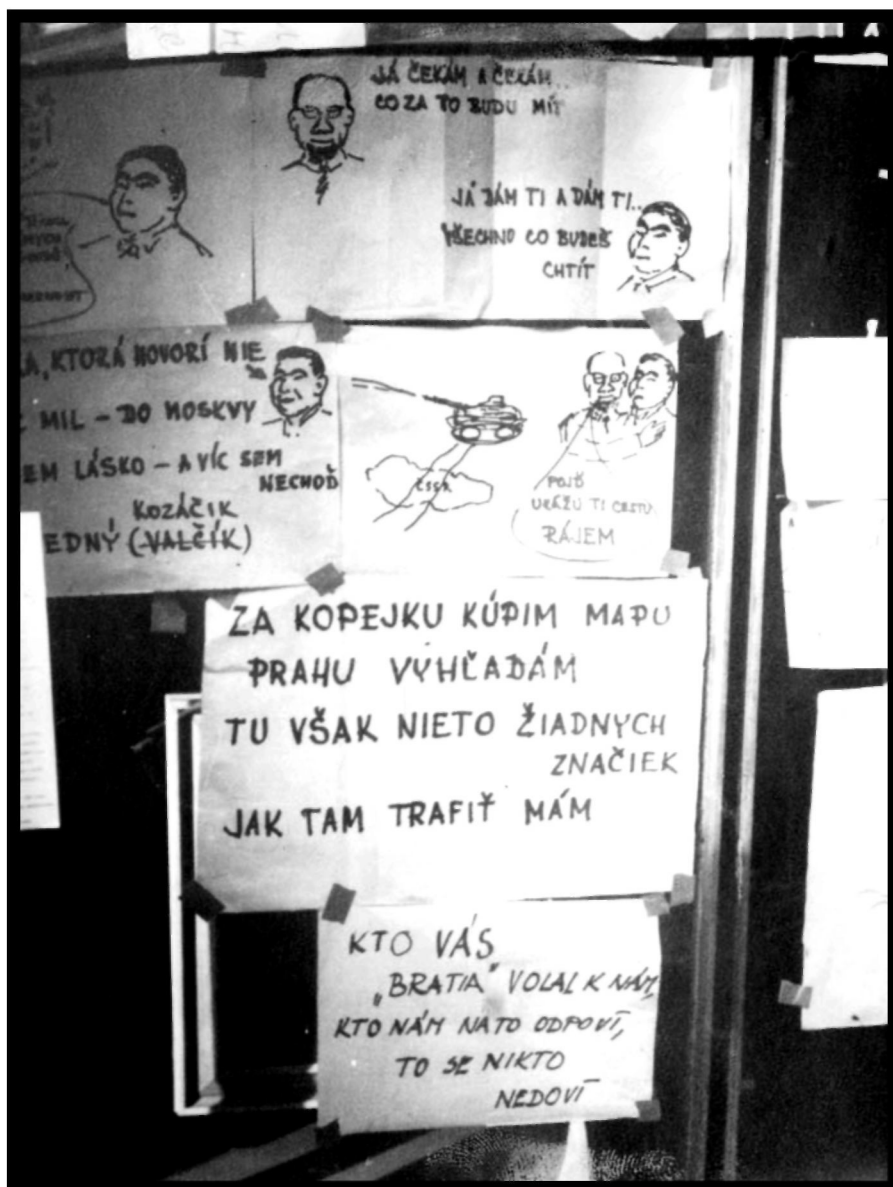 JÁ ČEKÁM A ČEKÁM..
CO ZA TO BUDU MÍT
JÁ DÁM TI A DÁM TI..
VŠECHNO CO BUDEŠ
CHTÍT
KTORÁ HOVORÍ NIE
MIL – DO MOSKVY
LÁSKO – A VÍC SEM
NECHOĎ
KOZÁČIK
(VALČÍK)
ČSSR
POJĎ
UKÁŽU TI CESTU
RÁJEM
ZA KOPEJKU KÚPIM MAPU
PRAHU VYHĽADÁM
TU VŠAK NIETO ŽIADNYCH
ZNAČIEK
JAK TAM TRAFIŤ MÁM
KTO VÁS
„BRATIA" VOLAL K NÁM,
KTO NÁM NATO ODPOVÍ,
TO SE NIKTO
NEDOVÍ